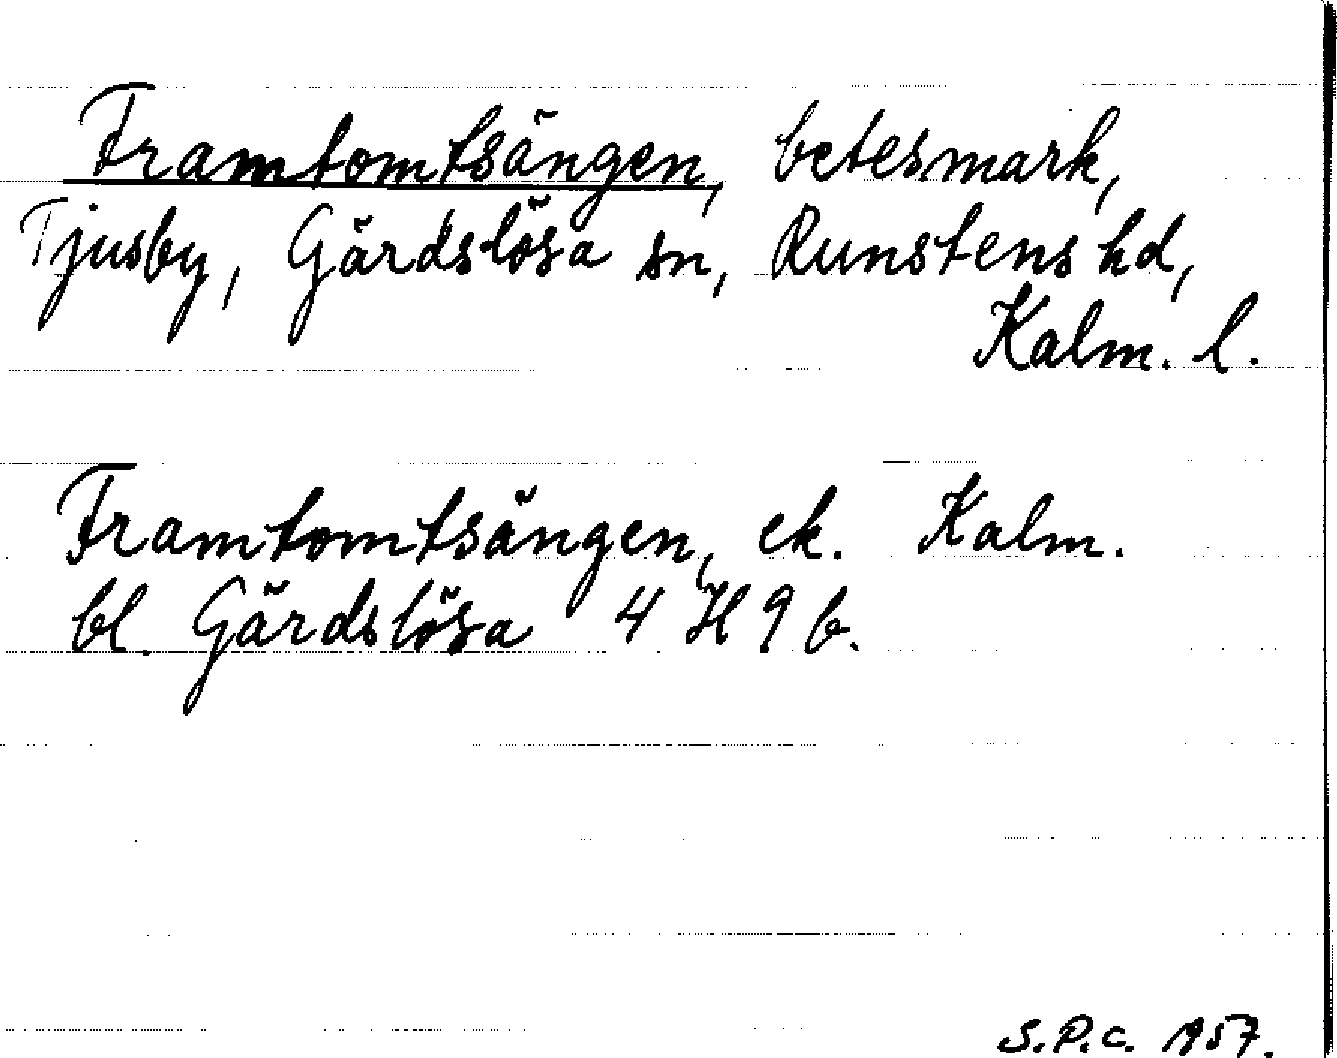 Framtomtsängen, betesmark,
Tjusby, Gärdslösa sn, Runstens hd,
Kalm. l.
Framtomtsängen, ek. Kalm.
bl. Gärdslösa 4 H 9 b.
S.P.C. 1957.